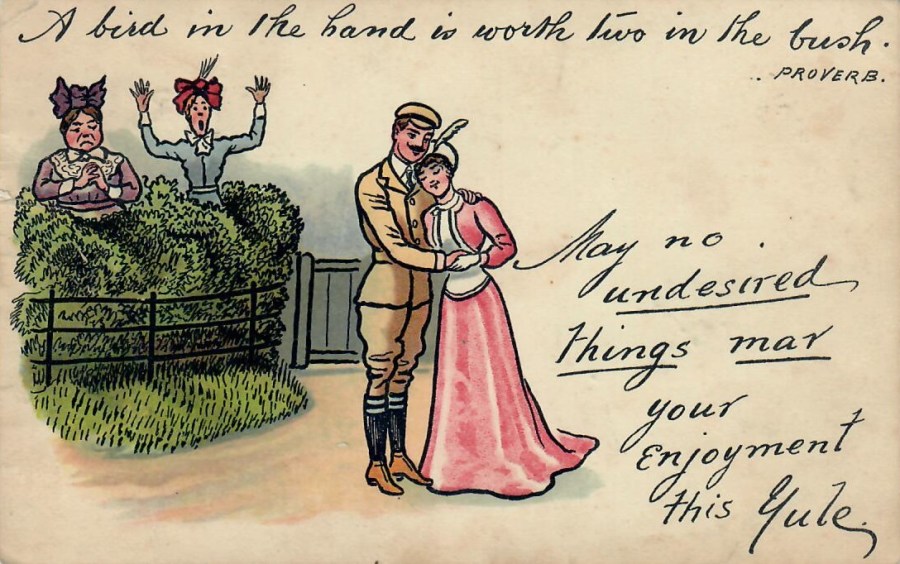 A bird in the hand is worth two in the bush.
.. PROVERB.
May no .
undesired
things mar
your
Enjoyment
this Yule.